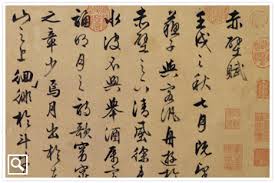 赤壁賦
壬戌之秋七月既望
蘇子與客汎舟遊於
赤壁之下清風徐
水波不興舉酒屬
誦明月之詩歌窈窕
之章少焉月出於
山之上徘徊於斗